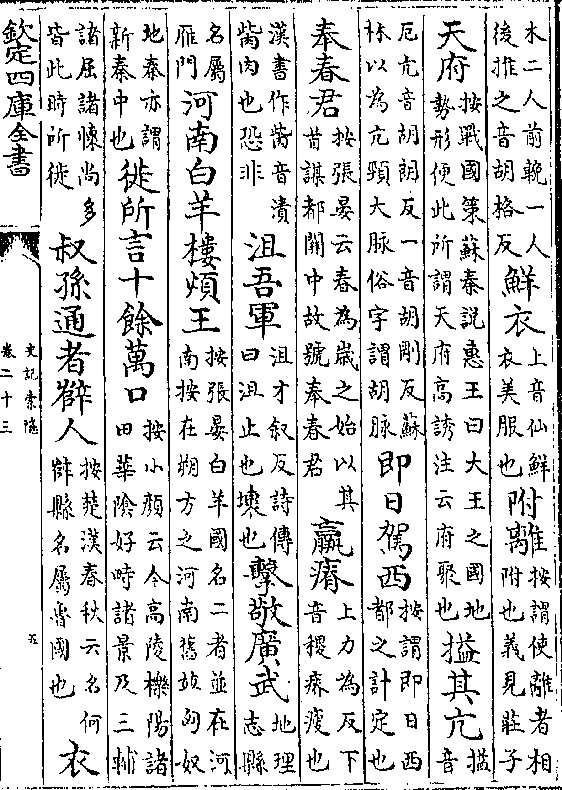 木二人前輓一人
後推之音胡格反
鮮衣
上音仙鮮
衣美服也
附離
按謂使離者相
附也義見莊子
天府
按戰國策蘇秦說惠王曰大王之國地
勢形便此所謂天府高誘注云府聚也
搤其亢
搤
音
厄亢音胡朗反一音胡剛反蘇
林以為亢頸大脉俗字謂胡脉
即日駕西
按謂即日西
都之計定也
奉春君
按張晏云春為嵗之始以其
昔謀都關中故號奉春君
羸瘠
上力為反下
音稷瘠瘦也
漢書作胔音漬
胔肉也恐非
沮吾軍
沮才叙反詩傳
曰沮止也壊也
繫敬廣武
地理
志縣
名屬
雁門
河南白羊樓煩王
按張晏白羊國名二者並在河
南按在朔方之河南舊竝匈奴
地秦亦謂
新秦中也
徙所言十餘萬口
按小顔云今高陵櫟陽諸
田華隂好畤諸景及三輔
諸屈諸懐尚多
皆此時所徙
叔孫通者薛人
按楚漢春秋云名何
薛縣名屬魯國也
衣
欽定四庫全書
史記索隱
卷二十三
五